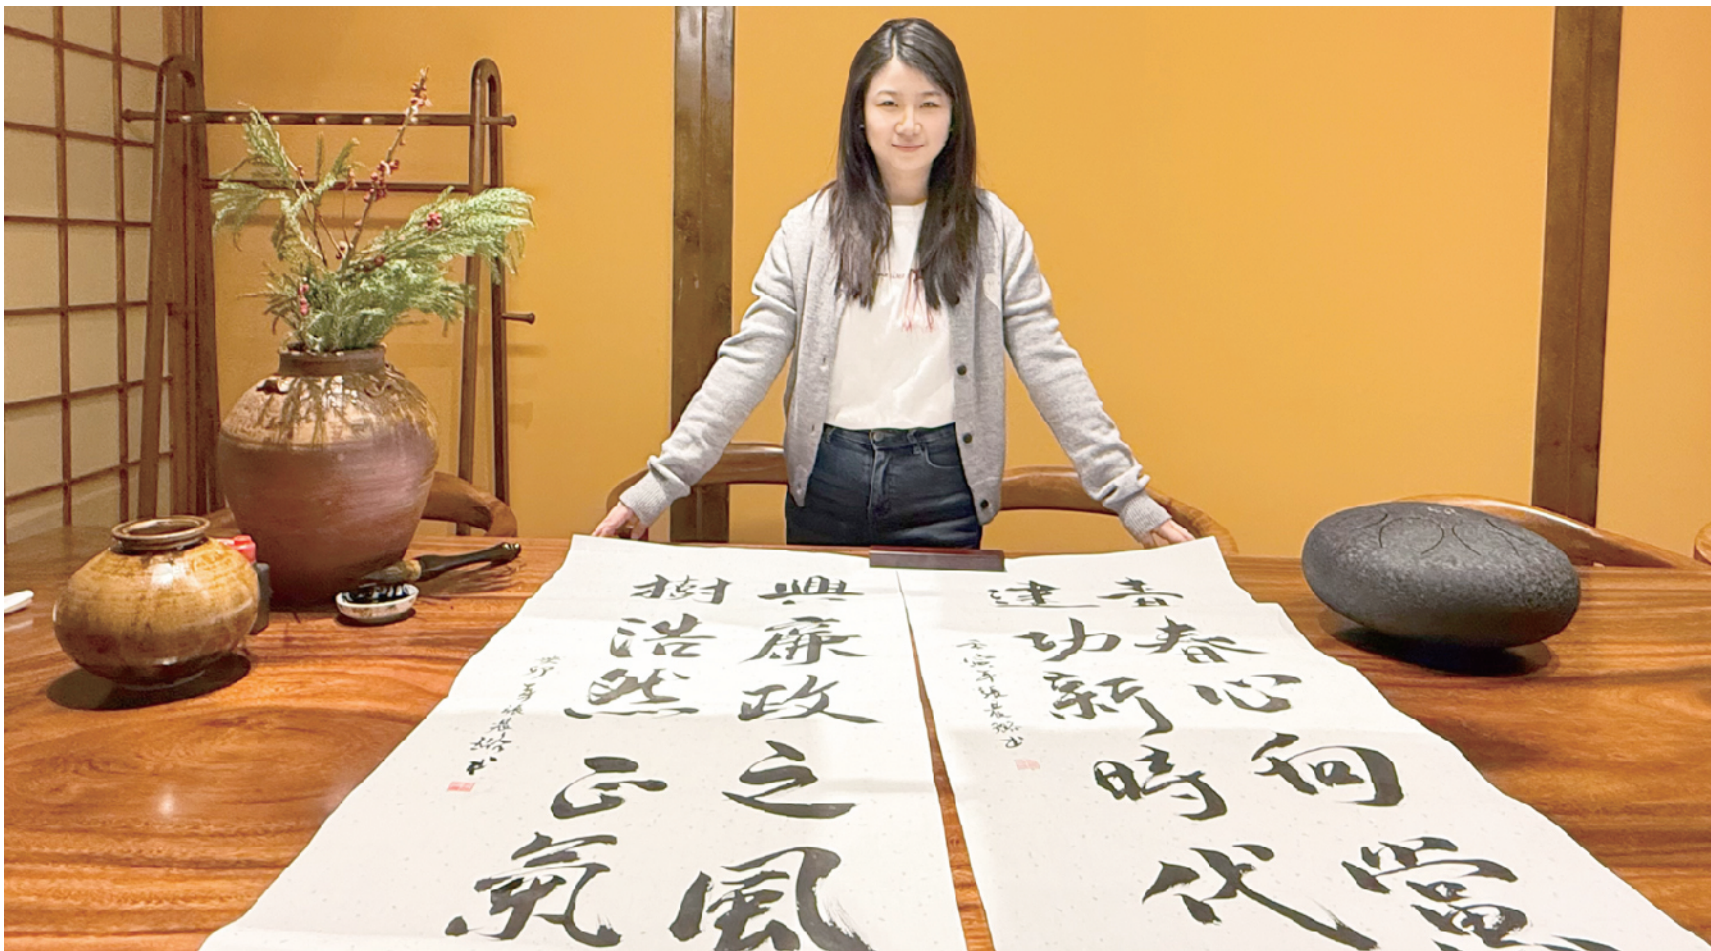 青春心向黨
建功新時代
興廉政之風
樹浩然正氣